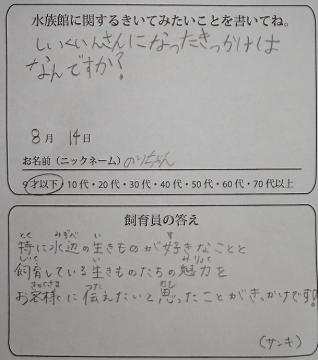 水族館に関するきいてみたいことを書いてね。
しいくいんさんになったきっかけは
なんですか?
8月 14日
お名前(ニックネーム)のりちゃん
9才以下・10代・20代・30代・40代・50代・60代・70代以上
飼育員の答え
とく みずべ い す
特に水辺の生きものが好きなことと
しいく い みりょく
飼育している生きものたちの魅力を
きゃくさま つた おも
お客様に伝えたいと思ったことがきっかけです!
(サンキ)